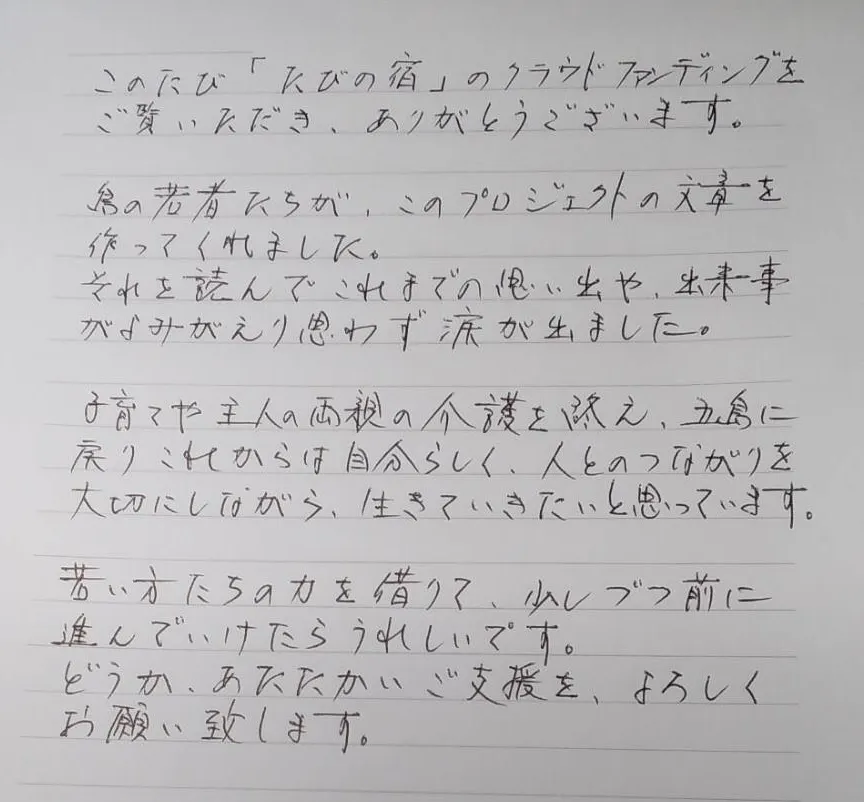 このたび「たびの宿」のクラウドファンディングを
ご覧いただき、ありがとうございます。
島の若者たちが、このプロジェクトの文章を
作ってくれました。
それを読んでこれまでの思い出や、出来事
がよみがえり思わず涙が出ました。
子育てや主人の両親の介護を終え、五島に
戻りこれからは自分らしく、人とのつながりを
大切にしながら、生きていきたいと思っています。
若い方たちの力を借りて、少しづつ前に
進んでいけたらうれしいです。
どうか、あたたかいご支援を、よろしく
お願い致します。